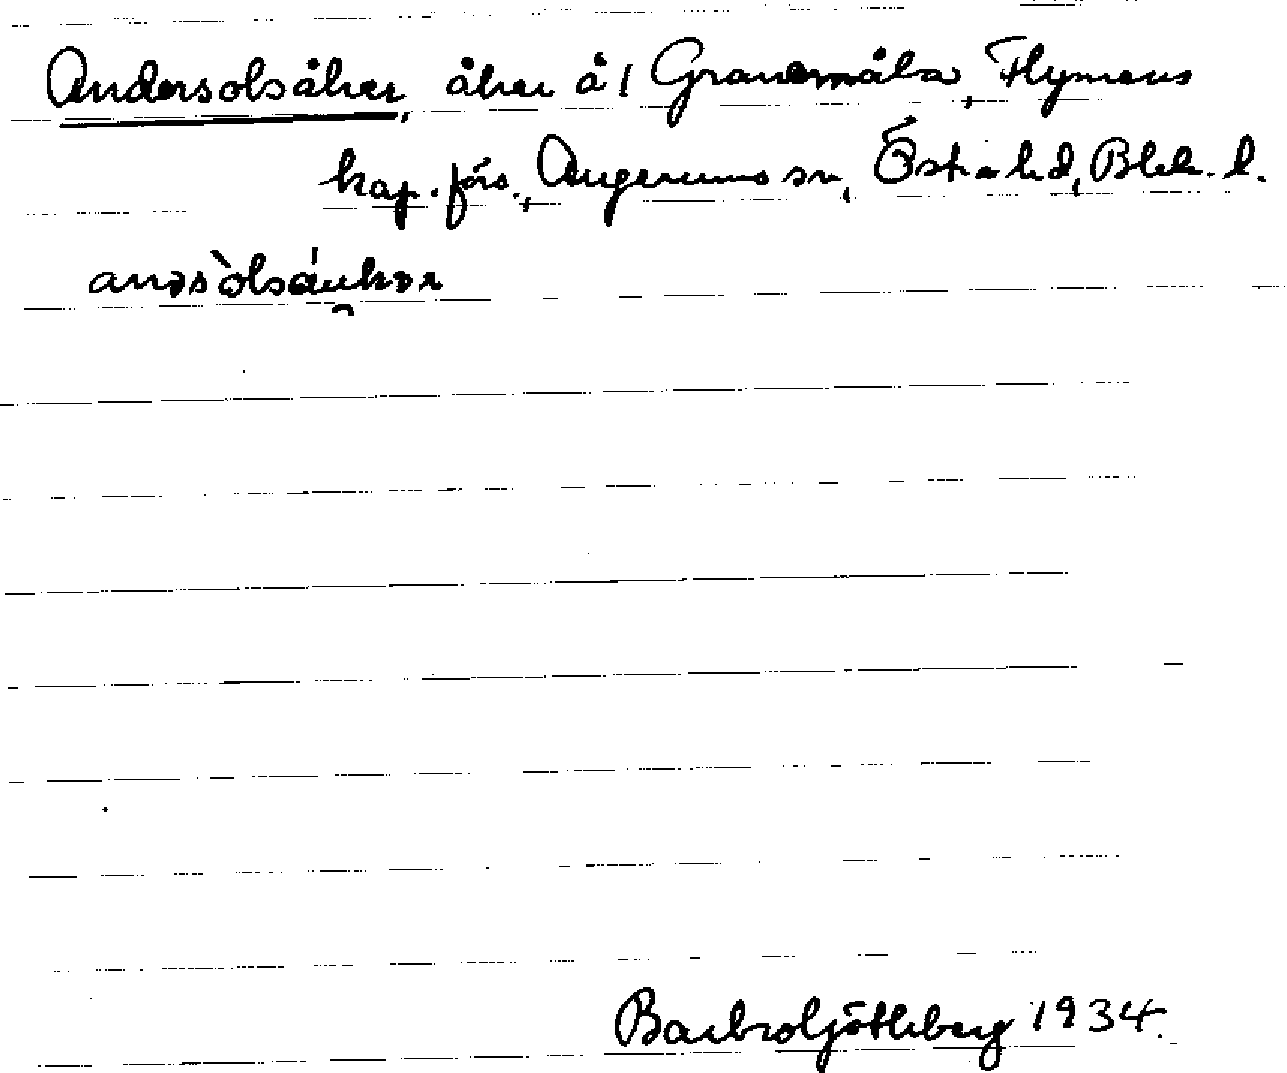 Andersolsåker, åker å 1 Granemåla, Flymens
kap. förs., Augerums sn, Östra hd, Blek. l.
andəsòlsáukər
Barbro Götlberg 1934.